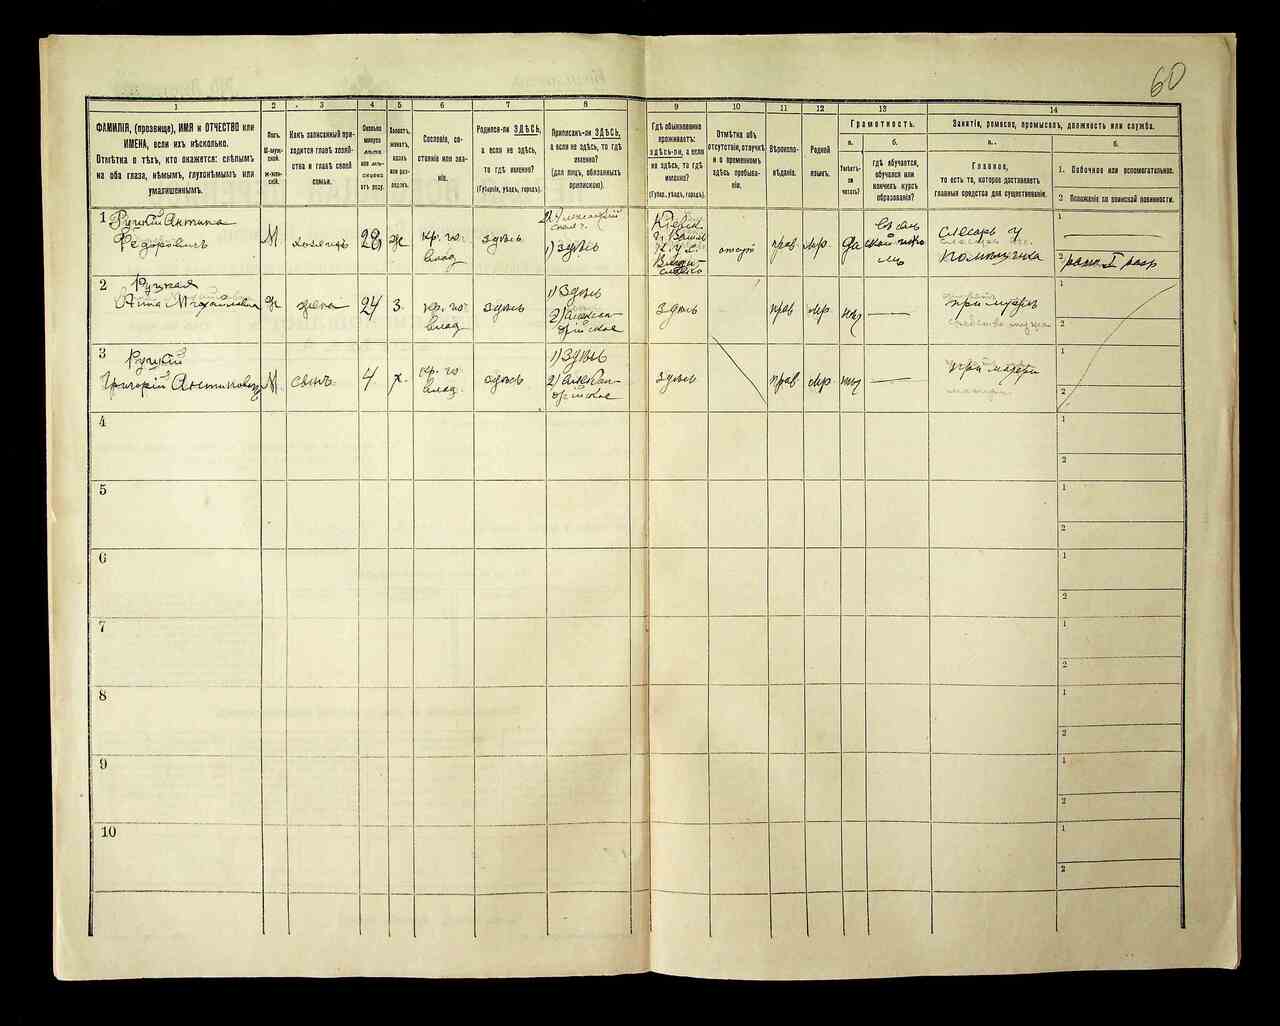 60
1
2
3
4
5
6
7
8
9
10
11
12
13
14
ФАМИЛІЯ, (прозвище), ИМЯ и ОТЧЕСТВО или
ИМЕНА, если ихъ нѣсколько.
Отмѣтка о тѣхъ, кто окажется: слѣпымъ
на оба глаза, нѣмымъ, глухонѣмымъ или
умалишеннымъ.
Полъ.
М-муж-
ской.
Ж-жен-
скій.
Какъ записанный при-
ходится главѣ хозяй-
ства и главѣ своей
семьи.
Сколько
минуло
лѣтъ
или мѣ-
сяцевъ
отъ роду.
Холостъ,
женатъ,
вдовъ
или раз-
веденъ.
Сословіе, со-
стояніе или зва-
ніе.
Родился-ли ЗДѢСЬ,
а если не здѣсь,
то гдѣ именно?
(Губернія, уѣздъ, городъ).
Приписанъ-ли ЗДѢСЬ,
а если не здѣсь, то гдѣ
именно?
(для лицъ, обязанныхъ
припискою).
Гдѣ обыкновенно
проживаетъ:
здѣсь-ли, а если
не здѣсь, то гдѣ
именно?
(Губер., уѣздъ, городъ).
Отмѣтка объ
отсутствіи, отлучкѣ
и о временномъ
здѣсь пребыва-
ніи.
Вѣроиспо-
вѣданіе.
Родной
языкъ.
Грамотность.
а.
Умѣетъ-
ли
читать?
б.
гдѣ обучается,
обучался или
кончилъ курсъ
образованія?
Занятіе, ремесло, промыселъ, должность или служба.
а.
Главное,
то есть то, которое доставляетъ
главныя средства для существованія.
б.
1. Побочное или вспомогательное.
2 Положеніе по воинской повинности.
1 Руцкій Антипа
Федоровичъ
М
хозяинъ
28
ж
кр. го
влад
здѣсь
1) здѣсь
Кіевск
отсут
прав
мр
да
Слесарь у
помѣщика
1
2
2 Руцкая
Анна Михайловна
ж
жена
24
з.
кр. го
влад
здѣсь
1) здѣсь
2) Алексан-
дрійское
здѣсь
прав
мр
нѣт
при мужѣ
средства мужа
1
2
3 Руцкій
Григорій Антиповичъ
М
сынъ
4
х.
кр. го
влад.
здѣсь
1) здѣсь
2) Алексан-
дрійское
здѣсь
прав
мр
нѣт
при матери
1
2
4
1
2
5
1
2
6
1
2
7
1
2
8
1
2
9
1
2
10
1
2